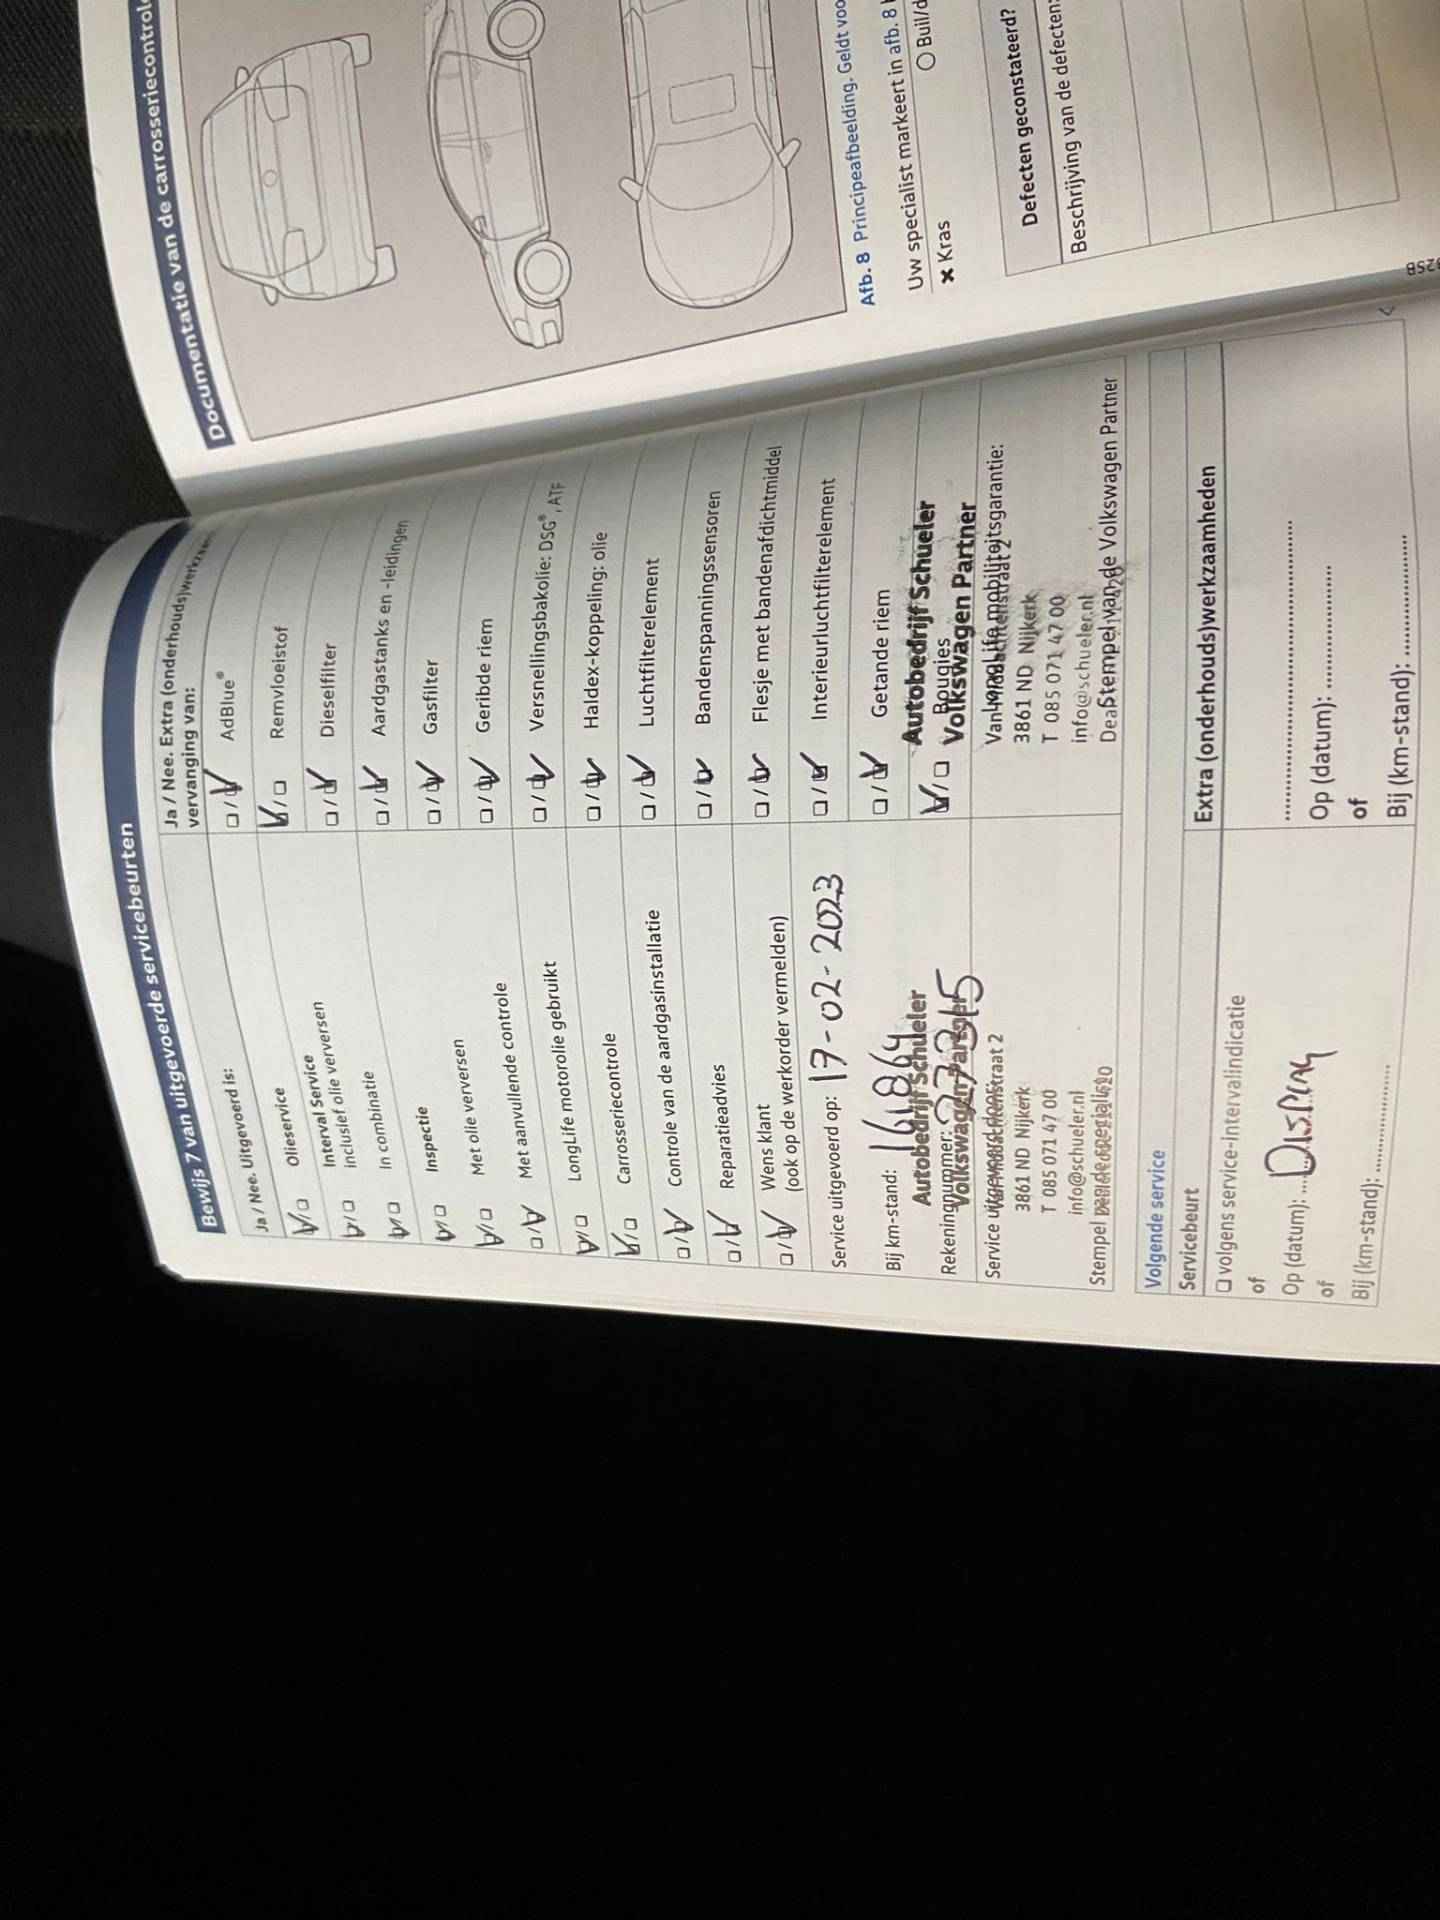 Bewijs 7 van uitgevoerde servicebeurten
Ja / Nee. Uitgevoerd is:
Olieservice
Interval Service
inclusief olie verversen
In combinatie
Inspectie
Met olie verversen
Met aanvullende controle
LongLife motorolie gebruikt
Carrosseriecontrole
Controle van de aardgasinstallatie
Reparatieadvies
Wens klant
(ook op de werkorder vermelden)
Service uitgevoerd op: 17-02-2023
Bij km-stand: 161864
Autobedrijf Schueler
Rekeningnummer:
Volkswagen Partner
Service uitgevoerd door:
3861 ND Nijkerk
T 085 071 47 00
info@schueler.nl
Stempel van de specialist
Ja / Nee. Extra (onderhouds)werkzaamheden
vervanging van:
AdBlue®
Remvloeistof
Dieselfilter
Aardgastanks en -leidingen
Gasfilter
Geribde riem
Versnellingsbakolie: DSG®, ATF
Haldex-koppeling: olie
Luchtfilterelement
Bandenspanningssensoren
Flesje met bandenafdichtmiddel
Interieurluchtfilterelement
Getande riem
Autobedrijf Schueler
Bougies
Volkswagen Partner
LongLife mobiliteitsgarantie:
3861 ND Nijkerk
T 085 071 47 00
info@schueler.nl
Stempel van de Volkswagen Partner
Volgende service
Servicebeurt
volgens service-intervalindicatie
of
Op (datum): DISPLAY
of
Bij (km-stand):
Extra (onderhouds)werkzaamheden
Op (datum):
of
Bij (km-stand):
Documentatie van de carrosseriecontrole
Afb. 8 Principeafbeelding. Geldt voo
Uw specialist markeert in afb. 8
× Kras
Buil/d
Defecten geconstateerd?
Beschrijving van de defecten: